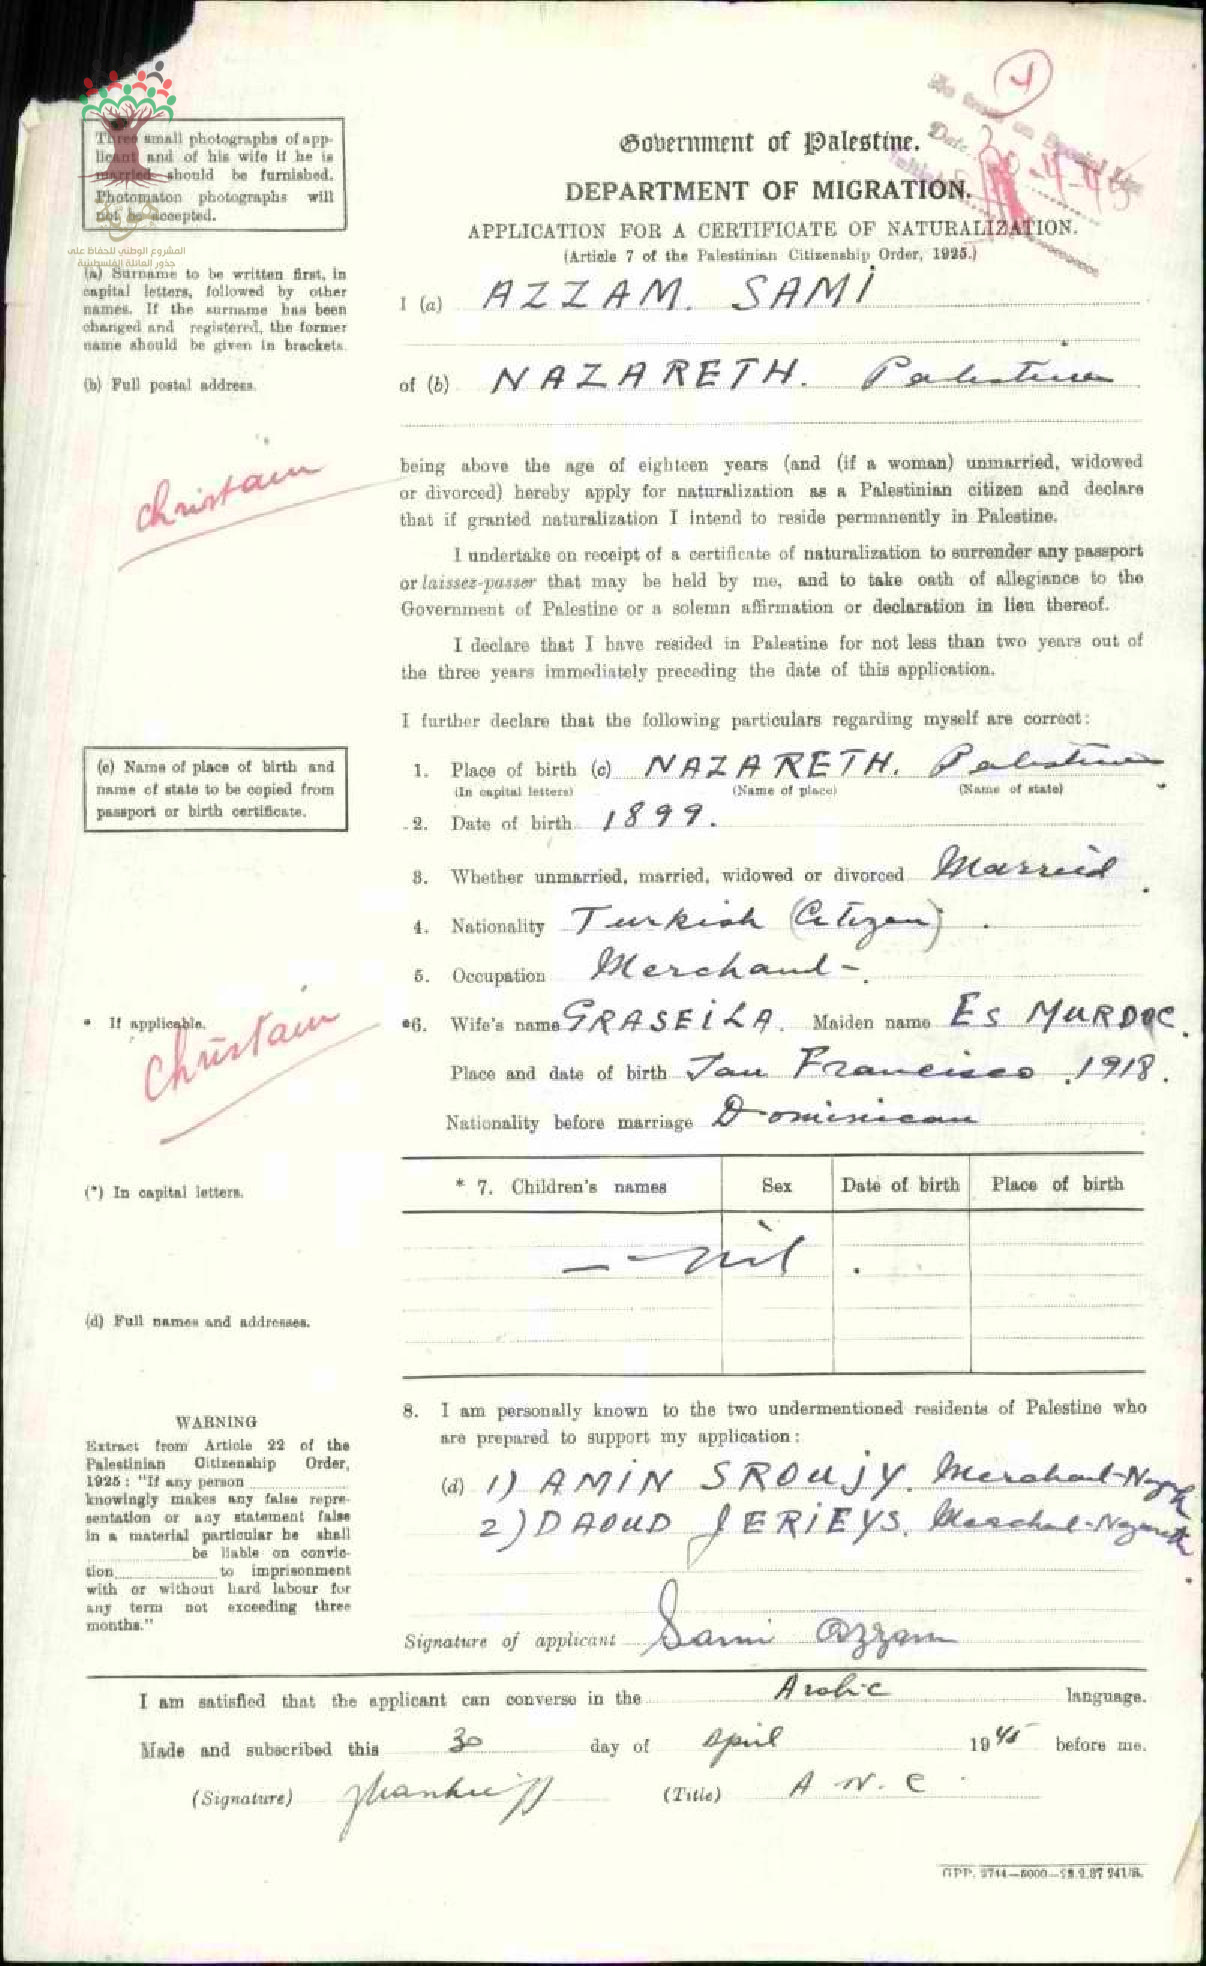 Three small photographs of app-
licant and of his wife if he is
married should be furnished.
Photomaton photographs will
not be accepted.
المشروع الوطني للحفاظ على
جذور العائلة الفلسطينية
4
No
on Special List
Date
30-4-45
Government of Palestine.
DEPARTMENT OF MIGRATION.
APPLICATION FOR A CERTIFICATE OF NATURALIZATION.
(Article 7 of the Palestinian Citizenship Order, 1925.)
(a) Surname to be written first, in
capital letters, followed by other
names. If the surname has been
changed and registered, the former
name should be given in brackets.
I (a) AZZAM. SAMI
(b) Full postal address.
of (b) NAZARETH. Palestine
christain
being above the age of eighteen years (and (if a woman) unmarried, widowed
or divorced) hereby apply for naturalization as a Palestinian citizen and declare
that if granted naturalization I intend to reside permanently in Palestine.
I undertake on receipt of a certificate of naturalization to surrender any passport
or laissez-passer that may be held by me, and to take oath of allegiance to the
Government of Palestine or a solemn affirmation or declaration in lieu thereof.
I declare that I have resided in Palestine for not less than two years out of
the three years immediately preceding the date of this application.
I further declare that the following particulars regarding myself are correct:
(c) Name of place of birth and
name of state to be copied from
passport or birth certificate.
1. Place of birth (c) NAZARETH. Palestine
(In capital letters) (Name of place) (Name of state)
2. Date of birth 1899.
3. Whether unmarried, married, widowed or divorced Married
4. Nationality Turkish (Citizen)
5. Occupation Merchant
* If applicable.
christain
*6. Wife's name GRASEILA. Maiden name ES MURDOC.
Place and date of birth San Francisco 1918.
Nationality before marriage Dominican
(*) In capital letters.
* 7. Children's names Sex Date of birth Place of birth
— nil .
(d) Full names and addresses.
8. I am personally known to the two undermentioned residents of Palestine who
are prepared to support my application:
(d) 1) AMIN SROUJY. Merchant-Nazareth
2) DAOUD JERIEYS. Merchant-Nazareth.
WARNING
Extract from Article 22 of the
Palestinian Citizenship Order,
1925: "If any person
knowingly makes any false repre-
sentation or any statement false
in a material particular he shall
be liable on convic-
tion to imprisonment
with or without hard labour for
any term not exceeding three
months."
Signature of applicant Sami Azzam
I am satisfied that the applicant can converse in the Arabic language.
Made and subscribed this 30 day of April 1945 before me.
(Signature) (Title) A. N. C.
GPP. 9744—6000—28.9.37 941/R.